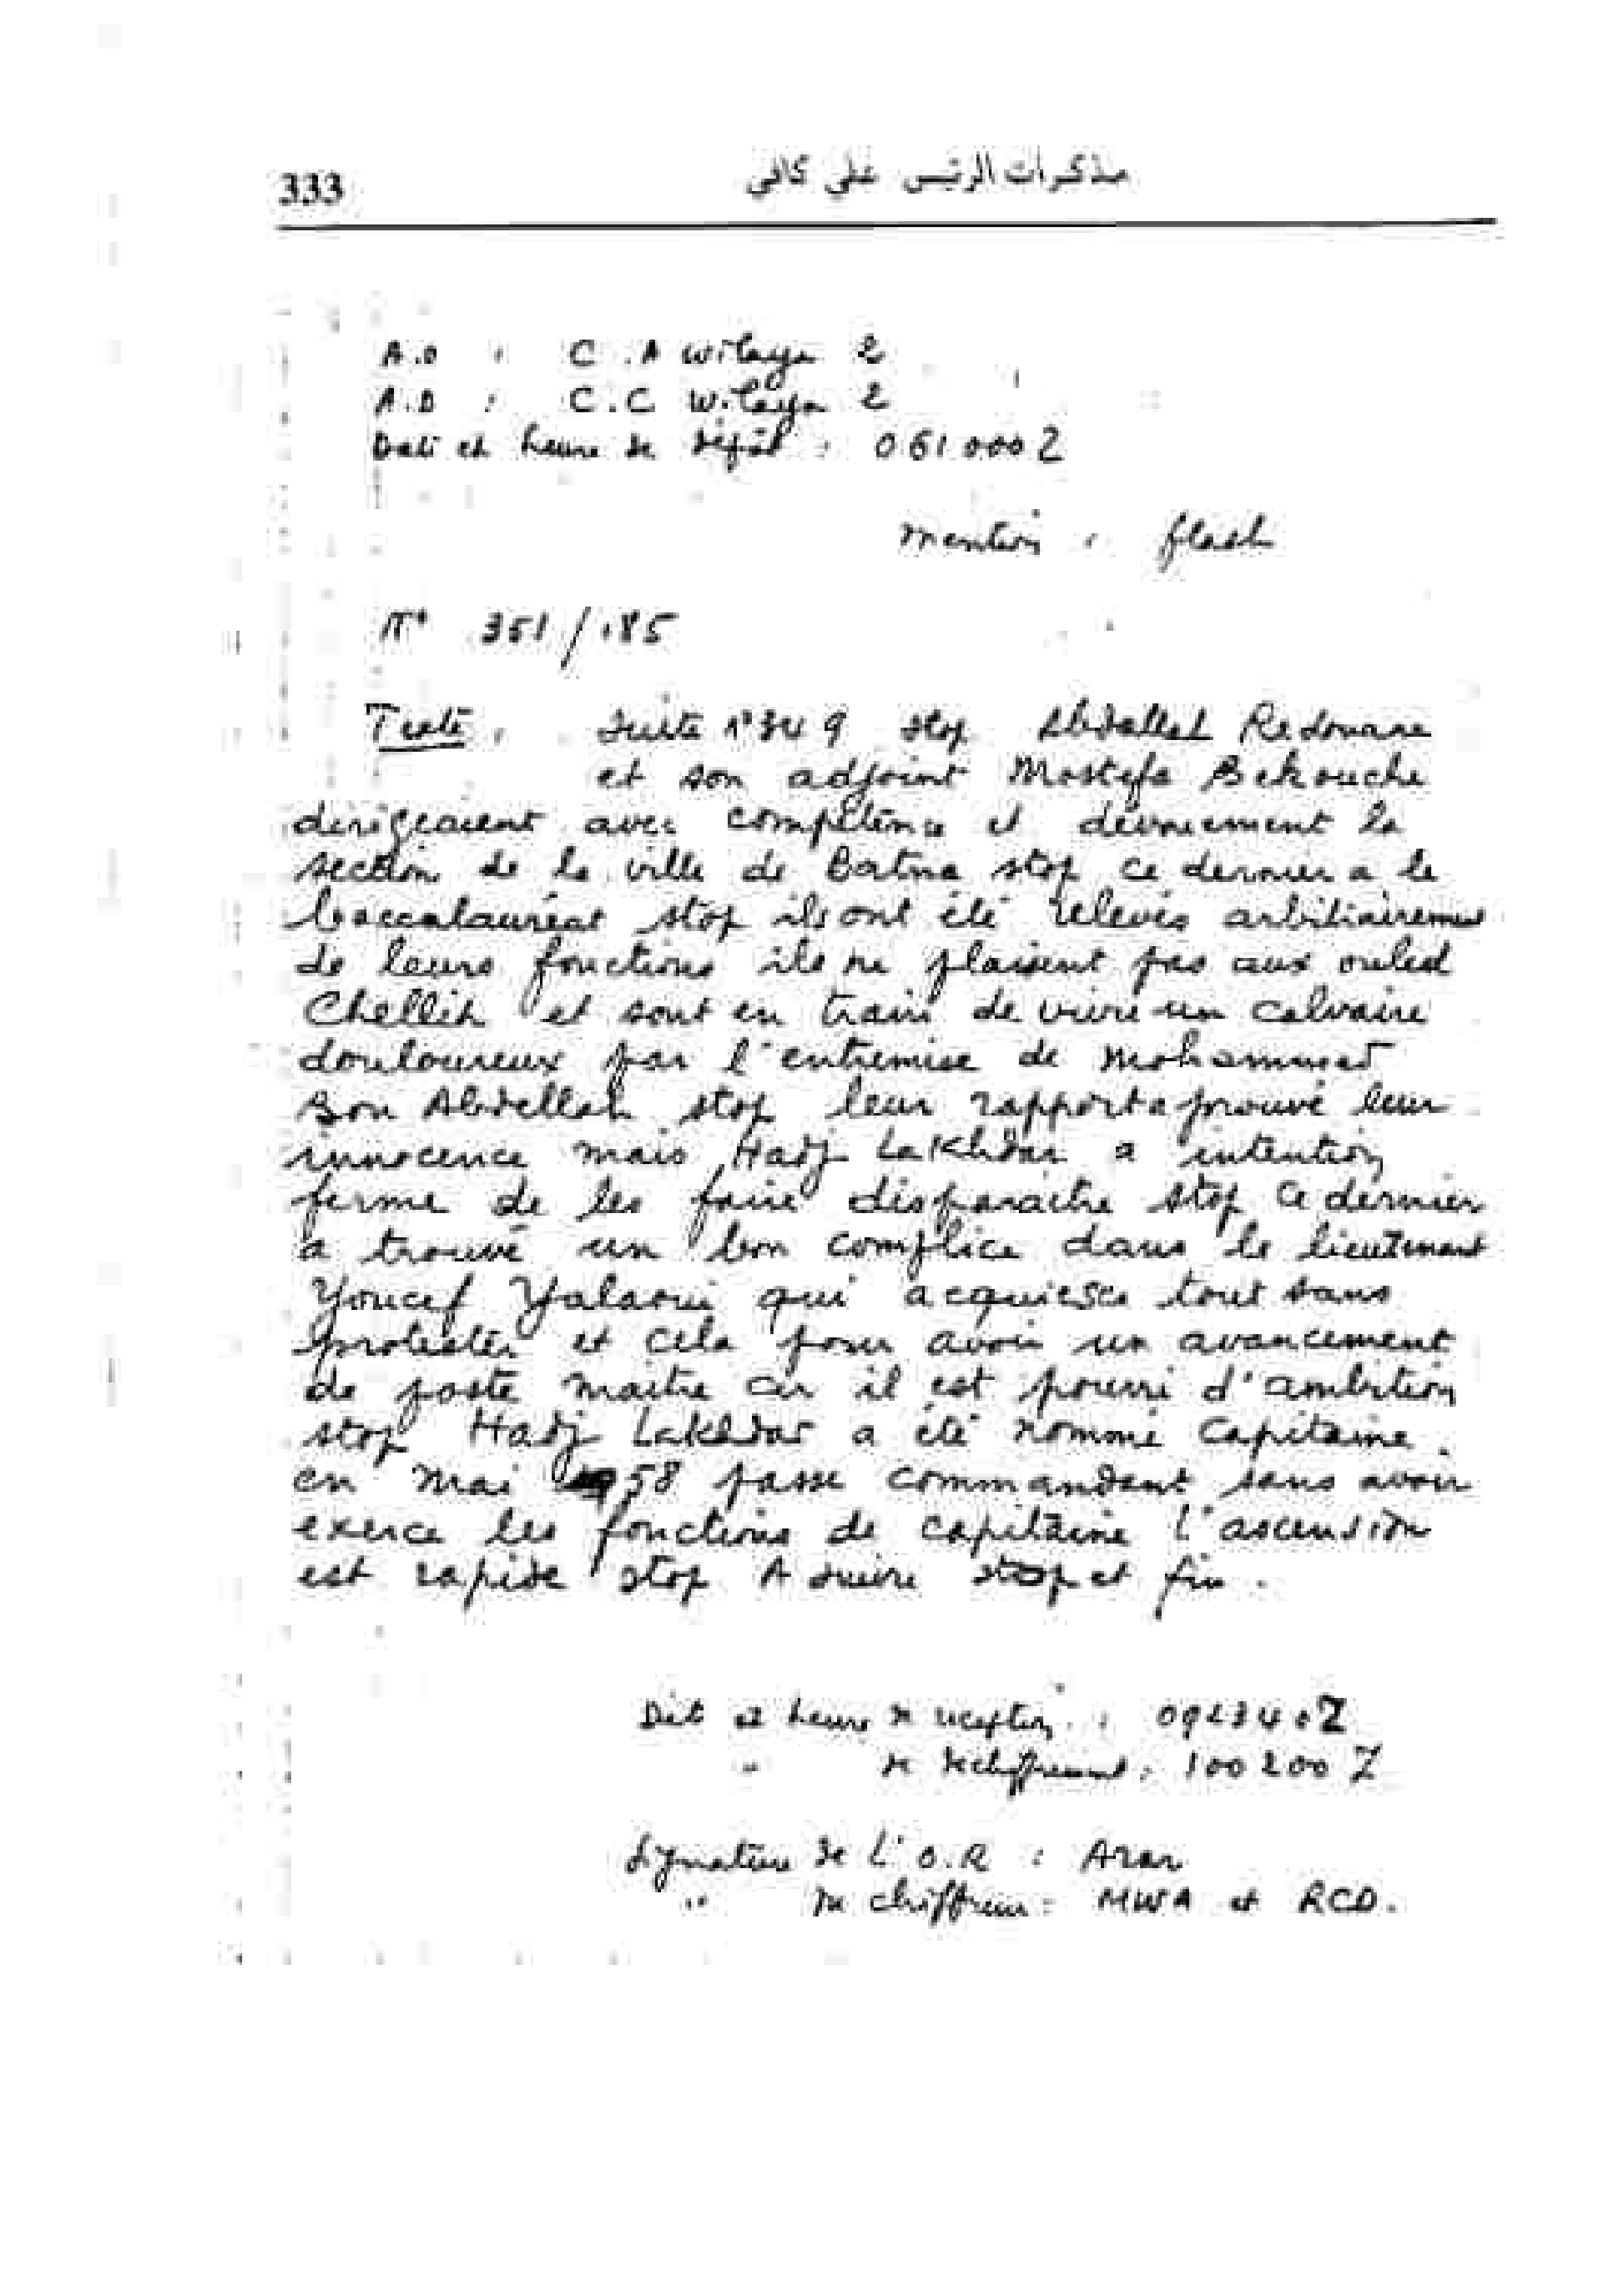 333
مذكرات الرئيس علي كافي
A.O : C.A Wilaya 2
A.D : C.C Wilaya 2
Date et heure de dépôt : 061000Z
Mention : flash
N° 351/185
Texte : Suite N° 349 stop Abdallah Redouane
et son adjoint Mostefa Bekouche
dirigeaient avec compétence et dévouement la
section de la ville de Batna stop ce dernier a le
baccalauréat stop ils ont été relevés arbitrairement
de leurs fonctions ils ne plaisent pas aux ouled
Chellih et sont en train de vivre un calvaire
douloureux par l'entremise de Mohammed
Bou Abdellah stop leur rapport a prouvé leur
innocence mais Hadj Lakhdar a intention
ferme de les faire disparaitre stop ce dernier
a trouvé un bon complice dans le lieutenant
Youcef Yalaoui qui acquiesce tout sans
protester et cela pour avoir un avancement
de poste maitre car il est pourri d'ambition
stop Hadj Lakhdar a été nommé Capitaine
en Mai 1958 passe commandant sans avoir
exercé les fonctions de capitaine l'ascension
est rapide stop A suivre stop et fin.
Date et heure de réception : 092340Z
" de déchiffrement : 100200Z
Signature de l'O.R : Azar
" du chiffreur : MWA et RCD.